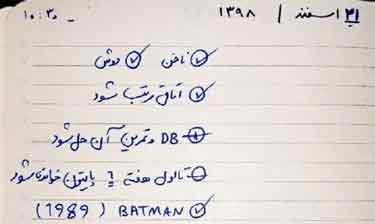 اسفند / ۱۳۹۸ ۱۰:۳۰
ناخن ✓ دوش ✓
اتاق مرتب شود ✓
DB و تمرین آن حل شود
تا اول هفته پایتون خوانده شود
BATMAN (1989) ✓